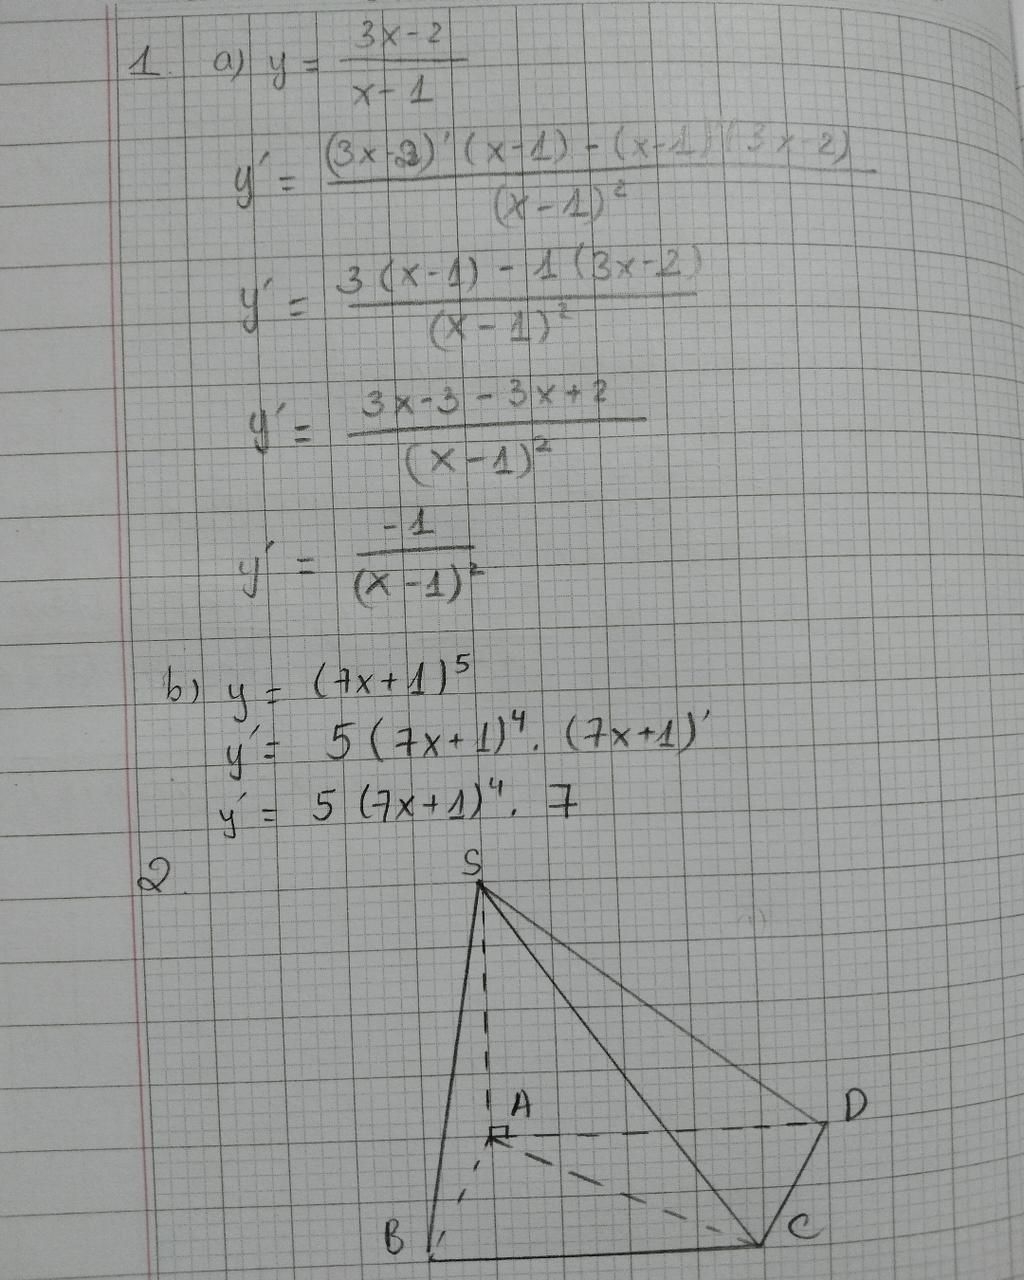 1. a) y = (3x-2)/(x-1)
y' = ((3x-2)'(x-1) - (x-1)'(3x-2))/(x-1)²
y' = (3(x-1) - 1(3x-2))/(x-1)²
y' = (3x-3-3x+2)/(x-1)²
y' = -1/(x-1)²
b) y = (7x+1)⁵
y' = 5(7x+1)⁴. (7x+1)'
y' = 5(7x+1)⁴. 7
2.
S
A
D
B
C